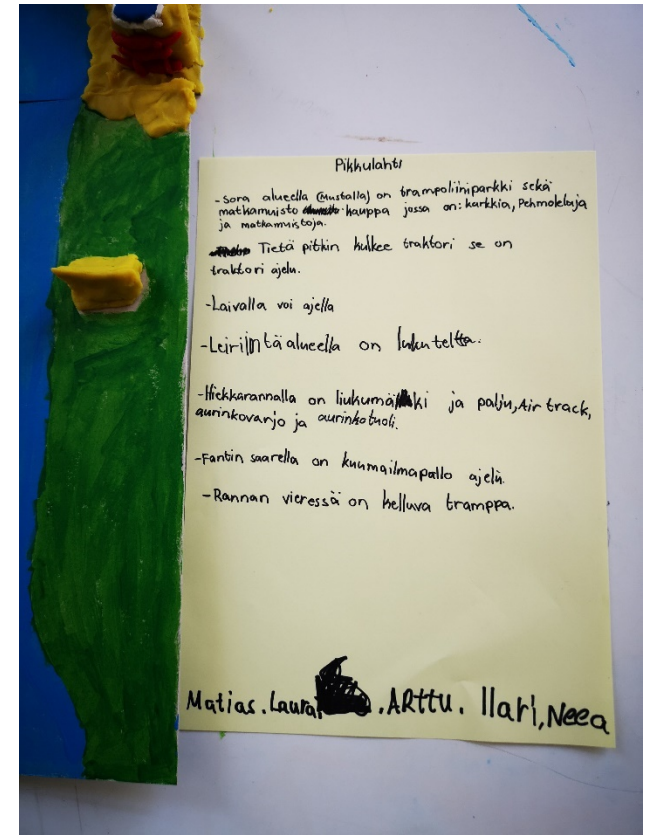 Pikkulahti
-Sora alueella (Mustalla) on trampoliiniparkki sekä
matkamuisto kauppa jossa on: karkkia, Pehmoleluja
ja matkamuistoja.
Tietä pitkin kulkee traktori se on
traktori ajelu.
-Laivalla voi ajella
-Leirintäalueella on lukuteltta.
-Hiekkarannalla on liukumäki ja palju, Air track,
aurinkovarjo ja aurinkotuoli.
-Fantin saarella on kuumailmapallo ajelu.
-Rannan vieressä on kelluva tramppa.
Matias. Laura, .ARTTU. Ilari, Neea